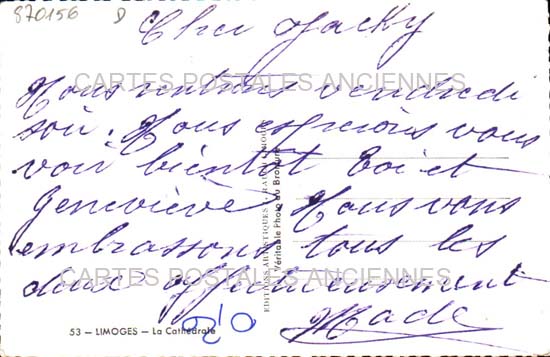 870156 D
Cher Jacky
Nous rentrons vendredi
soir. Nous espérions vous
voir bientôt toi et
Geneviève Nous vous
embrassons tous les
deux affectueusement
Made
CARTES POSTALES ANCIENNES
CARTES POSTALES ANCIENNES
Véritable Photo au Bromure
53 — LIMOGES — La Cathédrale